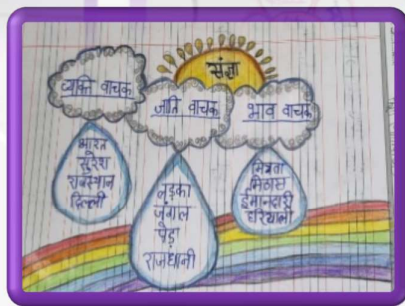 संज्ञा
व्यक्ति वाचक
जाति वाचक
भाव वाचक
भारत
सुरेश
राजस्थान
दिल्ली
लड़का
जंगल
पेड़
राजधानी
मित्रता
मिठास
ईमानदारी
हरियाली